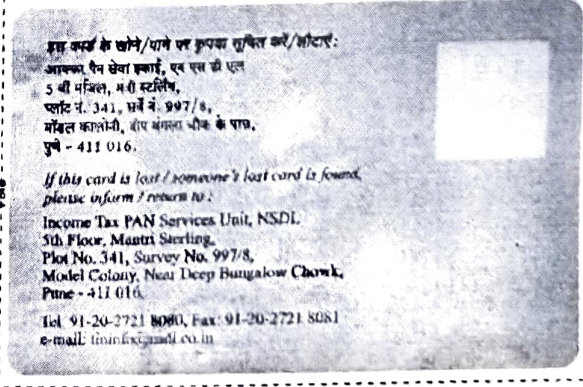 इस कार्ड के खोने/पाने पर कृपया सूचित करें/लौटाएं:
आयकर पैन सेवा इकाई, एन एस डी एल
5 वीं मंजिल, मंत्री स्टर्लिंग,
प्लॉट नं. 341, सर्वे नं. 997/8,
मॉडल कालोनी, दीप बंगला चौक के पास,
पुणे - 411 016.
If this card is lost / someone's lost card is found,
please inform / return to :
Income Tax PAN Services Unit, NSDL
5th Floor, Mantri Sterling,
Plot No. 341, Survey No. 997/8,
Model Colony, Near Deep Bungalow Chowk,
Pune - 411 016.
Tel: 91-20-2721 8080, Fax: 91-20-2721 8081
e-mail: